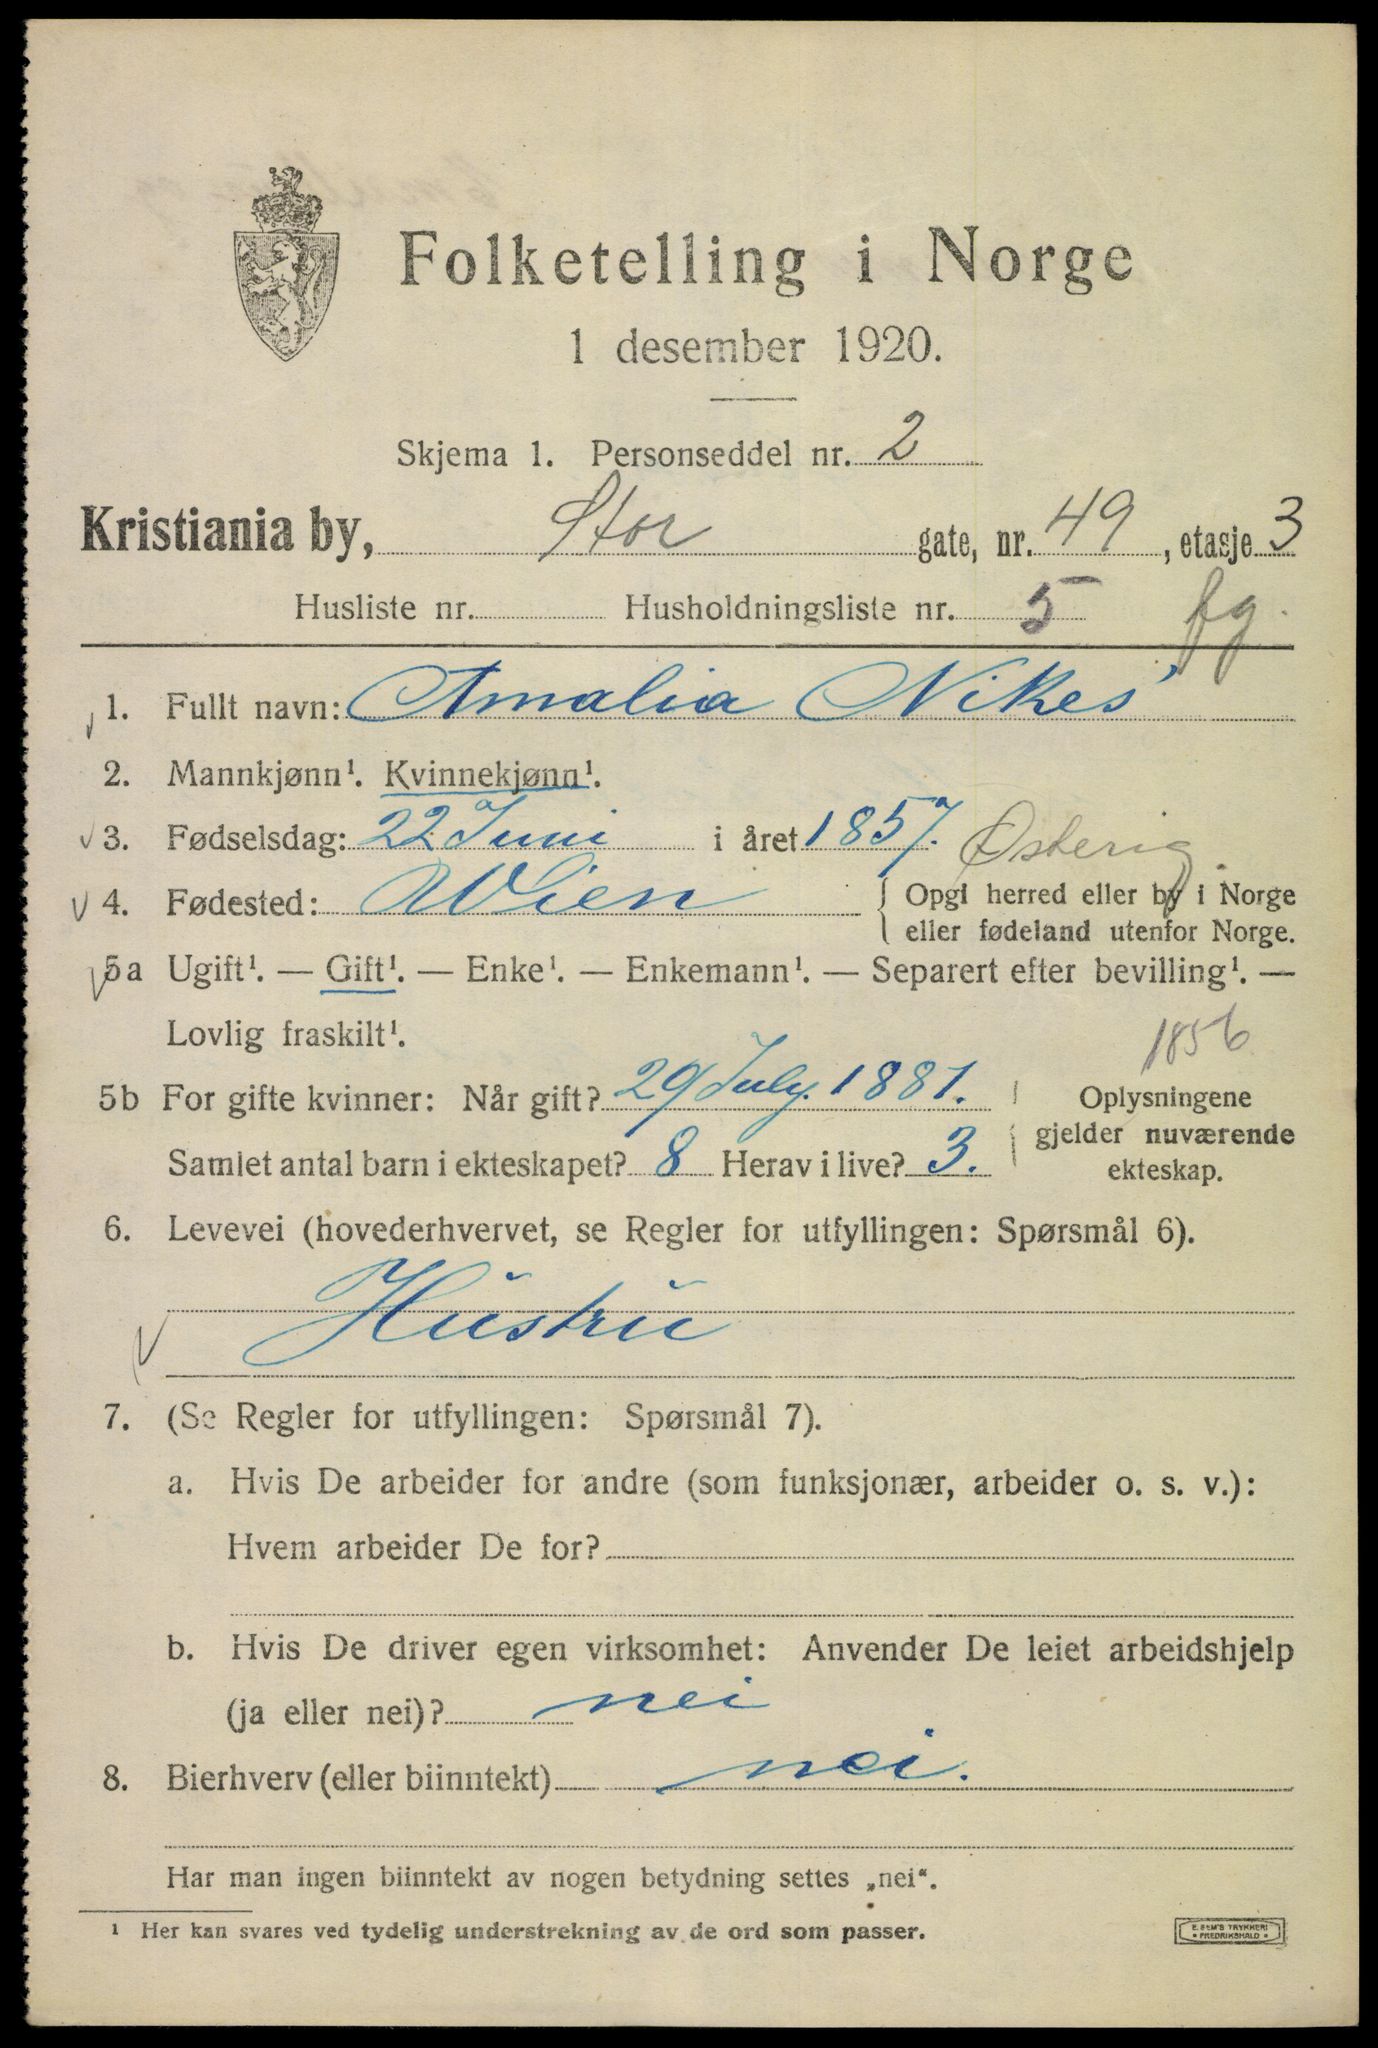 Folketelling i Norge
1 desember 1920.
Skjema 1. Personseddel nr. 2
Kristiania by, Stor gate, nr. 49, etasje 3
Husliste nr. Husholdningsliste nr. 5 fg.
1. Fullt navn: Amalia Nikes
2. Mannkjønn¹. Kvinnekjønn¹.
3. Fødselsdag: 22 Juni i året 1857. Østerig
4. Fødested: Wien { Opgi herred eller by i Norge
eller fødeland utenfor Norge.
5a Ugift¹. — Gift¹. — Enke¹. — Enkemann¹. — Separert efter bevilling¹. —
Lovlig fraskilt¹. 1856
5b For gifte kvinner: Når gift? 29 July. 1881. Oplysningene
gjelder nuværende
Samlet antal barn i ekteskapet? 8 Herav i live? 3. ekteskap.
6. Levevei (hovederhvervet, se Regler for utfyllingen: Spørsmål 6).
Hústrú
7. (Se Regler for utfyllingen: Spørsmål 7).
a. Hvis De arbeider for andre (som funksjonær, arbeider o. s. v.):
Hvem arbeider De for?
b. Hvis De driver egen virksomhet: Anvender De leiet arbeidshjelp
(ja eller nei)? nei
8. Bierhverv (eller biinntekt) nei.
Har man ingen biinntekt av nogen betydning settes „nei“.
¹ Her kan svares ved tydelig understrekning av de ord som passer.
E. SEM'S TRYKKERI
• FREDRIKSHALD •